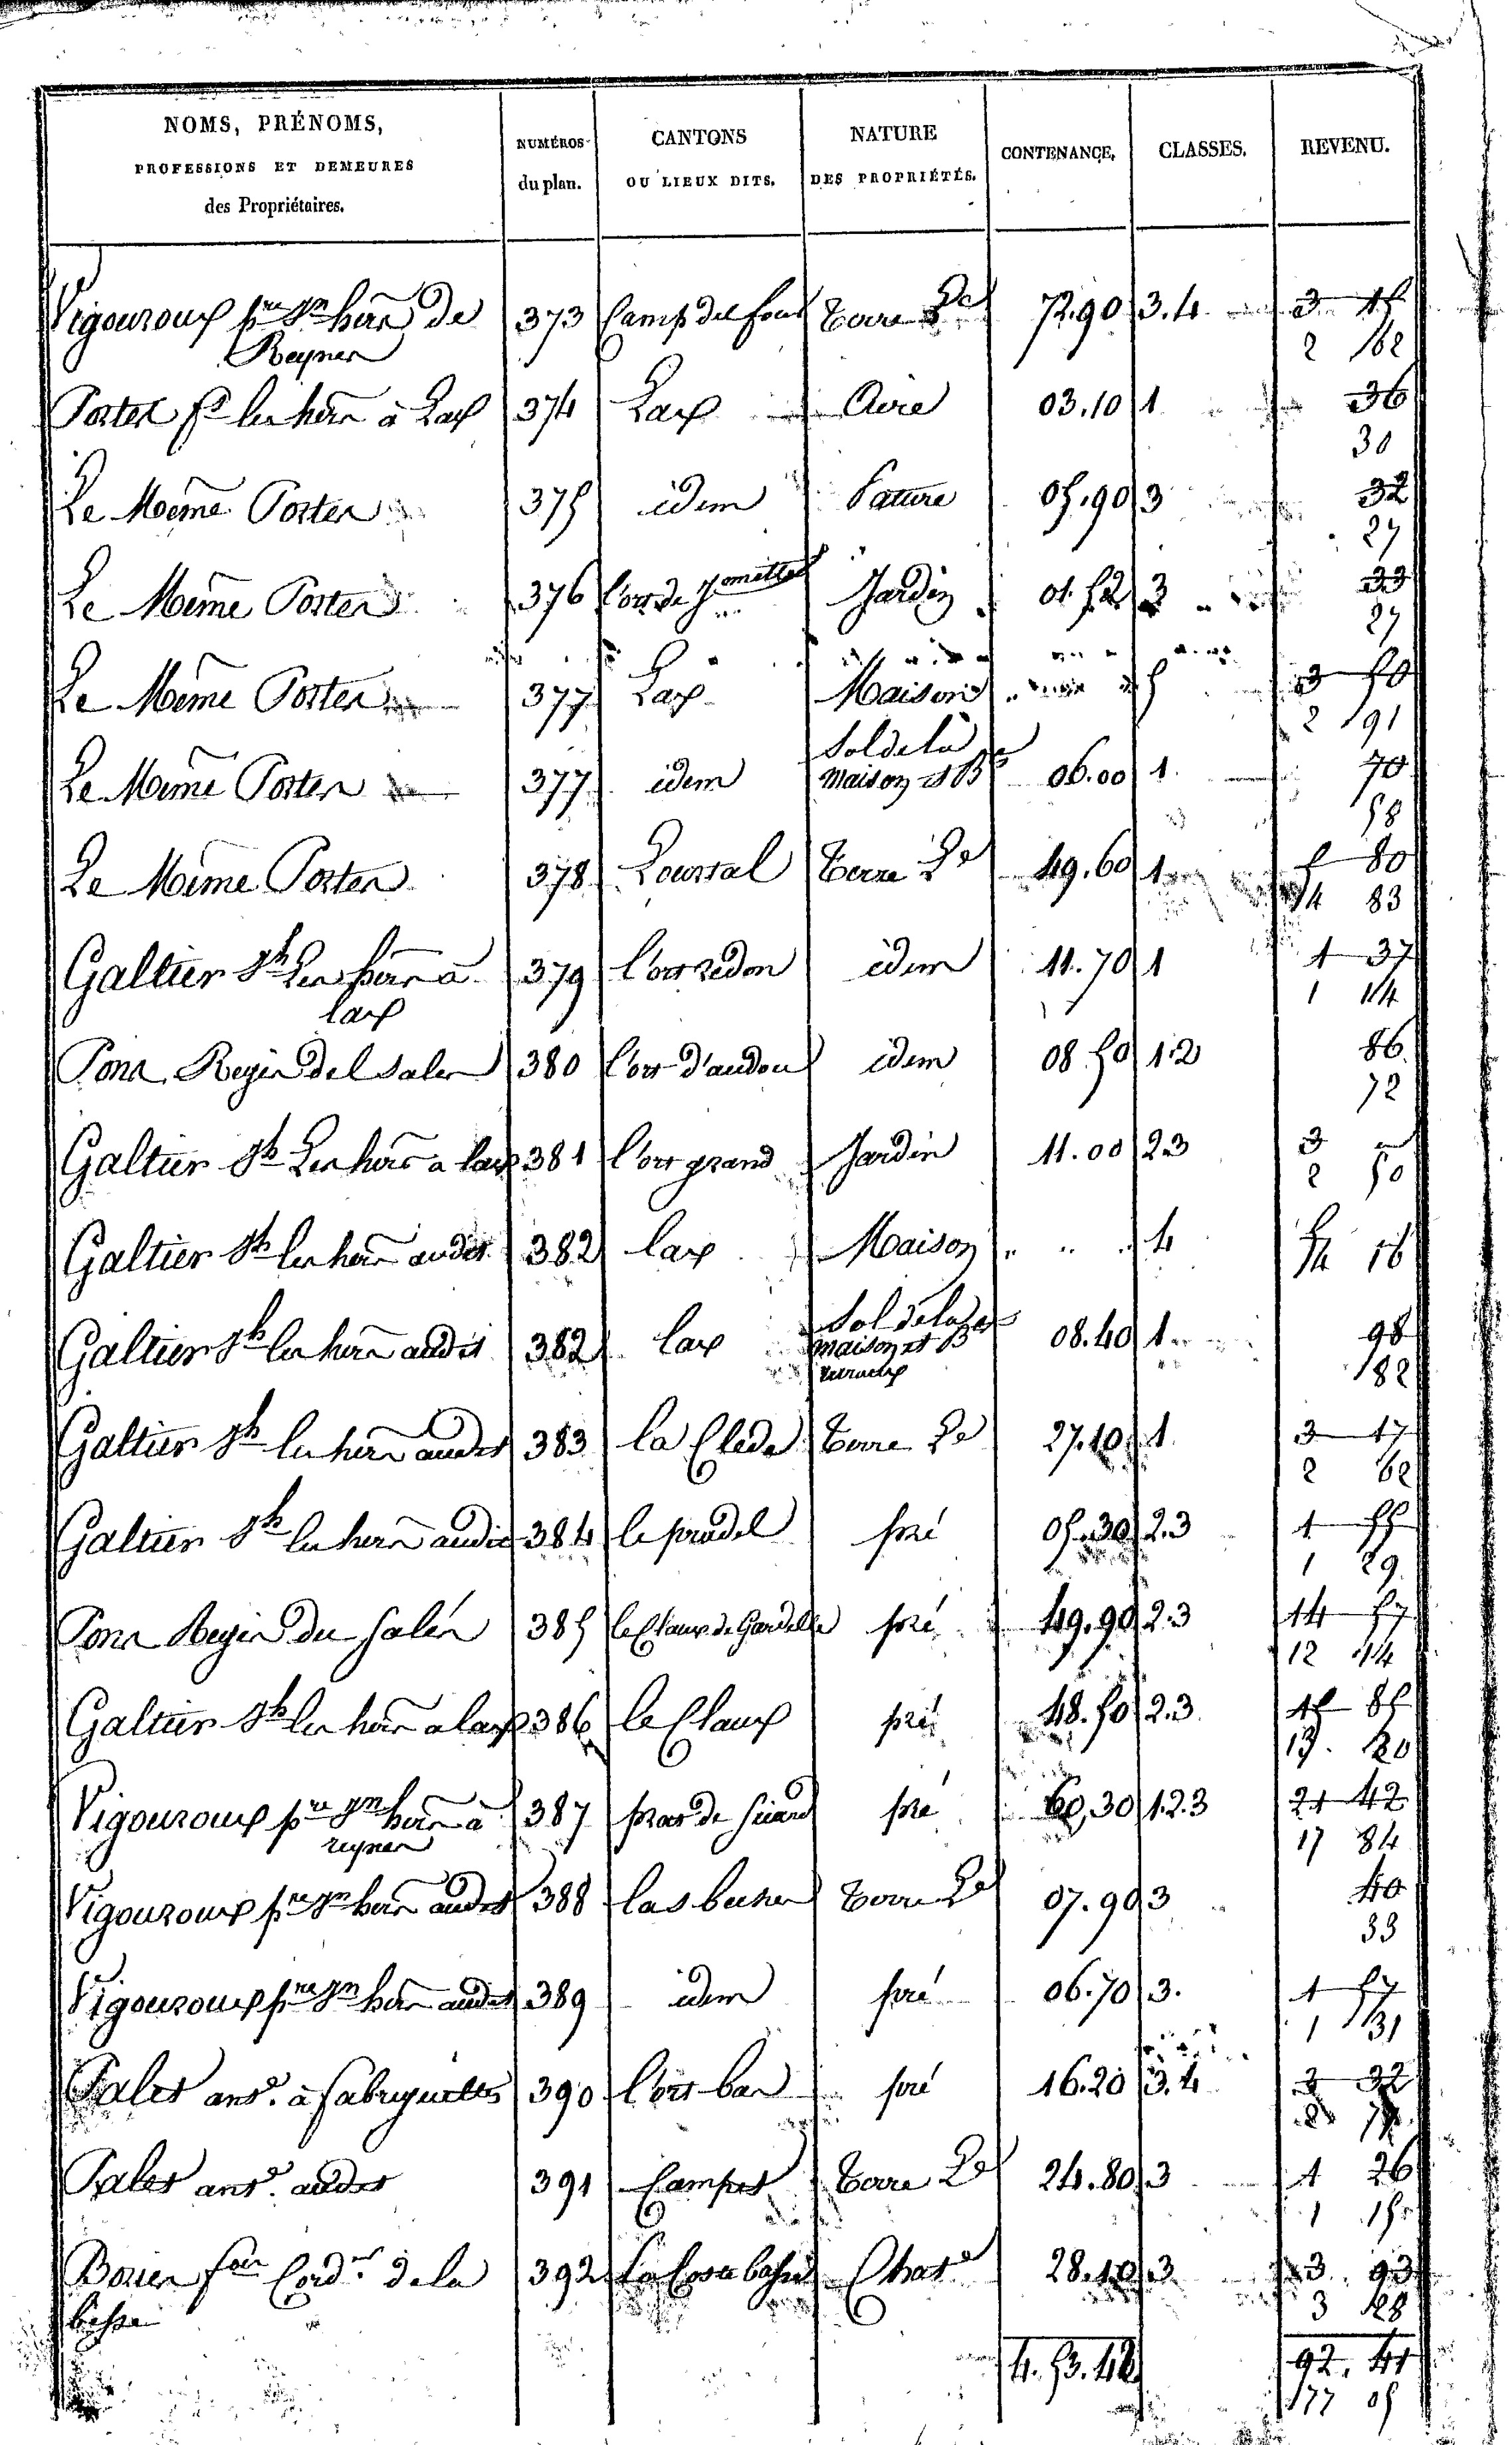 NOMS, PRÉNOMS,
PROFESSIONS ET DEMEURES
des Propriétaires.
NUMÉROS
du plan.
CANTONS
OU LIEUX DITS.
NATURE
DES PROPRIÉTÉS.
CONTENANCE.
CLASSES.
REVENU.
Vigouroux pre Jn hers de 373 Camp del four terre Le 72.90 3.4 3 15
Reyner 2 62
Poster fs les hers à Lax 374 Lax Aire 03.10 1 36
30
Le Même Poster 375 idem Pature 05.90 3 32
27
Le Même Poster 376 l'ort de Jardin 01.52 3 33
27
Le Même Poster 377 Lax Maison 5 3 50
2 91
Sol de la
Le Même Poster 377 idem maison et Bt 06.00 1 70
58
Le Même Poster 378 Lourtal terre Le 49.60 1 5 80
4 83
Galtier Jh Les hers à 379 l'ort redon idem 11.70 1 1 37
lax 1 14
Pons Regis del salés 380 l'ort d'audou idem 08.50 1.2 86
72
Galtier Jh Les hers a lax 381 l'ort grand Jardin 11.00 2.3 3
2 50
Galtier Jh les hers audit 382 lax Maison 4 5
4 16
Sol de la
Galtier Jh les hers audit 382 lax maison et Bt 08.40 1 98
82
Galtier Jh les hers audit 383 la Clede terre Le 27.10 1 3 17
2 62
Galtier Jh les hers audit 384 le pradel pré 05.30 2.3 1 55
1 29
Pons Regis du Salés 385 le Claux de Gardelle pré 49.90 2.3 14 57
12 14
Galtier Jh les hers a lax 386 le Claux pré 48.50 2.3 15 85
13 20
Vigouroux pre Jn hers à 387 prat de pré 60.30 1.2.3 21 42
reyner 17 84
Vigouroux pre Jn hers audit 388 las terre Le 07.90 3 40
33
Vigouroux pre Jn hers audit 389 idem pré 06.70 3. 1 57
1 31
Palet ant. à fabreguettes 390 l'ort bas pré 16.20 3.4 3 32
2
Palet ant. audit 391 Campet terre Le 24.80 3 1 26
1 15
Cordr de la 392 La Coste basse Chat 28.10 3 3 93
besse 3 28
4.53.42 92.41
77 05